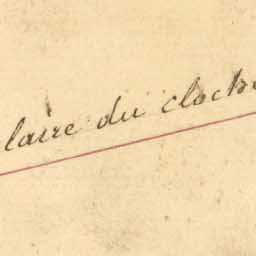 laire du cloche